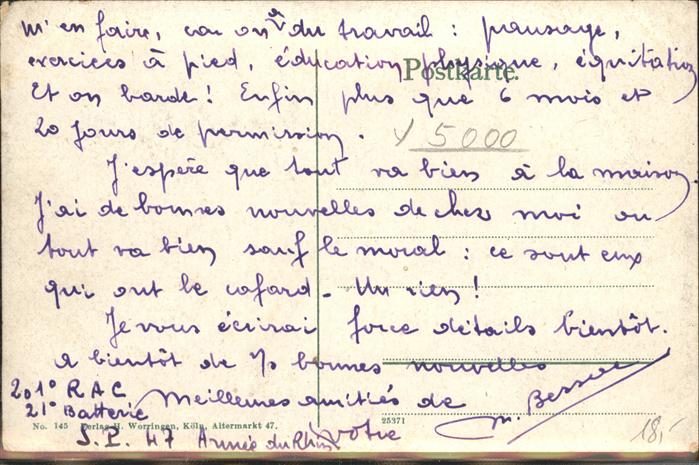 m'en faire, car on a du travail : pansage,
exercices à pied, éducation physique, équitation
Et on barde ! Enfin plus que 6 mois et
20 jours de permission.
Postkarte.
Y 5000
J'espère que tout va bien à la maison.
J'ai de bonnes nouvelles de chez moi où
tout va bien sauf le moral : ce sont eux
qui ont le cafard. Un rien !
Je vous écrirai force détails bientôt.
A bientôt de bonnes nouvelles
Meilleures amitiés de
votre
201e R A C
21e Batterie
S. P. 47 Armée du Rhin
No. 145 Verlag H. Worringen, Köln, Altermarkt 47.
25371
18,-